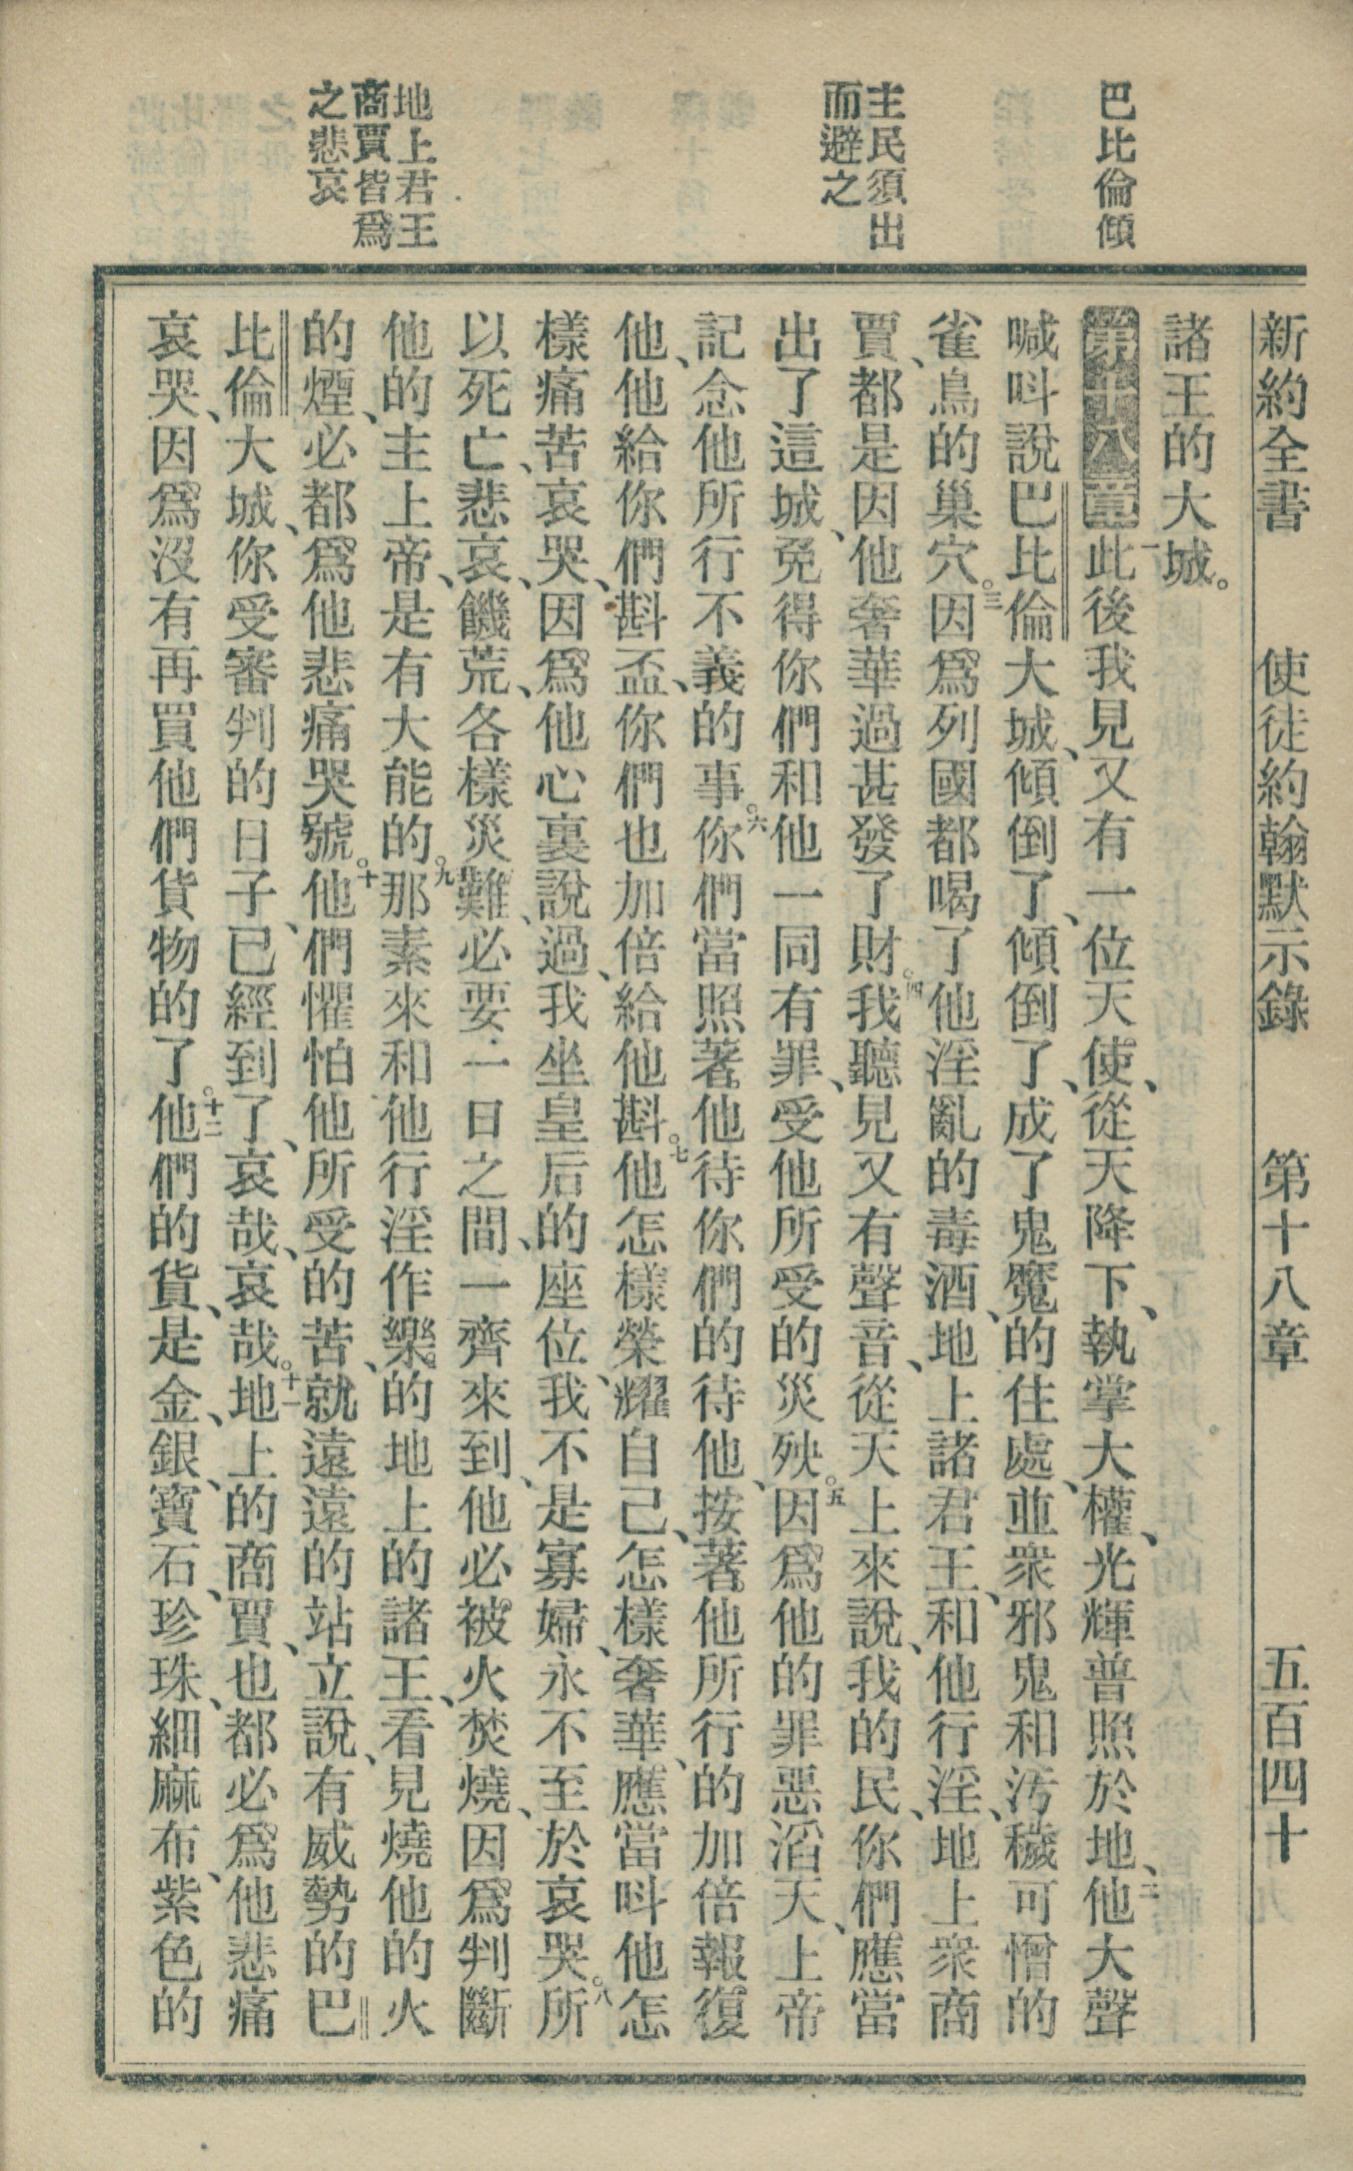 新約全書 使徒約翰默示錄 第十八章 五百四十
巴比倫傾
主民須出
而避之
地上君王
商賈皆爲
之悲哀
諸王的大城。
第十八章一此後我見又有一位天使、從天降下、執掌大權、光輝普照於地、二他大聲
喊呌說巴比倫大城、傾倒了、傾倒了、成了鬼魔的住處、並衆邪鬼和汚穢可憎的
雀鳥的巢穴。三因爲列國都喝了他淫亂的毒酒、地上諸君王、和他行淫、地上衆商
賈、都是因他奢華過甚發了財。四我聽見又有聲音、從天上來說、我的民、你們應當
出了這城、免得你們和他一同有罪、受他所受的災殃。五因爲他的罪惡滔天、上帝
記念他所行不義的事。六你們當照著他待你們的待他、按著他所行的加倍報復
他、他給你們斟盃、你們也加倍給他斟。七他怎樣榮耀自己、怎樣奢華、應當呌他怎
樣痛苦哀哭、因爲他心裏說過、我坐皇后的座位、我不是寡婦、永不至於哀哭。八所
以死亡、悲哀、饑荒、各樣災難、必要一日之間、一齊來到、他必被火焚燒、因爲判斷
他的主上帝、是有大能的。九那素來和他行淫作樂的地上的諸王、看見燒他的火
的煙、必都爲他悲痛哭號。十他們懼怕他所受的苦、就遠遠的站立說、有威勢的巴
比倫大城、你受審判的日子、已經到了、哀哉、哀哉。十一地上的商賈、也都必爲他悲痛
哀哭、因爲沒有再買他們貨物的了。十二他們的貨、是金、銀、寶石、珍珠、細麻布、紫色的